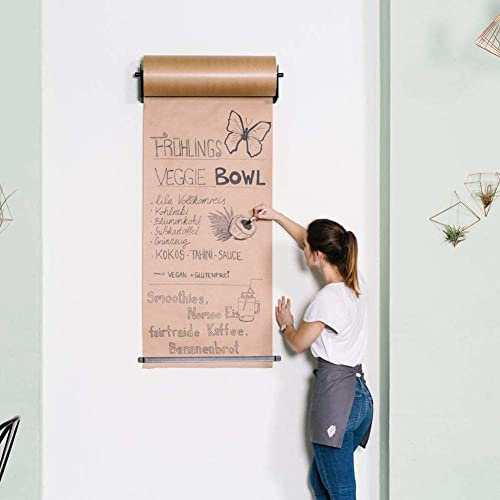 FRÜHLINGS
VEGGIE BOWL
· lila Vollkornreis
· Kohlrabi
· Blumenkohl
· Süßkartoffel
· Grünzeug
· KOKOS-TAHINI-SAUCE
→ VEGAN + GLUTENFREI
Smoothies,
Nomoo Eis
fairtraide Kaffee,
Bananenbrot